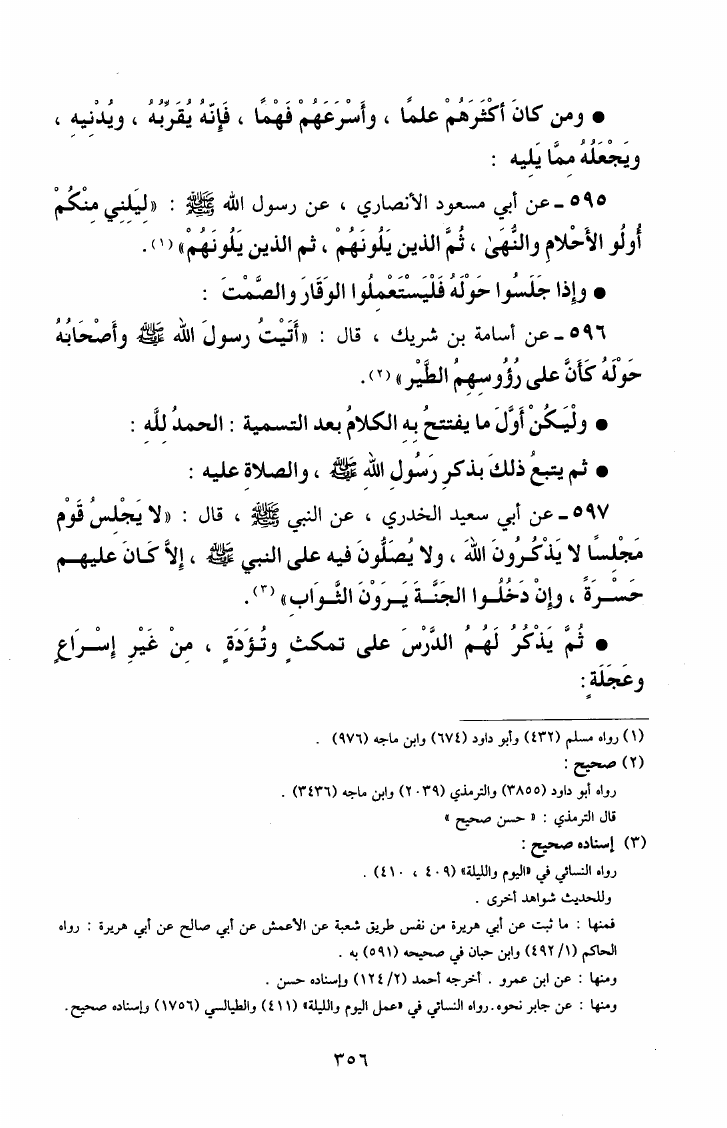 ● ومن كانَ أكْثَرَهُمْ علمًا ، وأسْرَعَهُمْ فَهْمًا ، فَإِنَّهُ يُقَرِّبُهُ ، ويُدْنِيهِ ،
ويَجْعَلُهُ مِمَّا يَلِيه :
٥٩٥ ـ عن أبي مسعود الأنصاري ، عن رسول الله ﷺ : «لِيَلِني مِنْكُمْ
أُولُو الأحْلامِ والنُّهَىٰ ، ثُمَّ الذين يَلُونَهُمْ ، ثم الذين يَلُونَهُمْ»(١).
● وإِذا جَلَسُوا حَوْلَهُ فَلْيَسْتَعْمِلُوا الوَقَارَ والصَّمْتَ :
٥٩٦ ـ عن أسامة بن شريك ، قال : «أَتَيْتُ رسولَ الله ﷺ وأَصْحَابُهُ
حَوْلَهُ كَأَنَّ على رُؤُوسِهِمُ الطَّيْر»(٢).
● ولْيَكُنْ أوَّلَ ما يفتتحُ بِهِ الكلامُ بعد التسمية : الحمدُ للَّهِ :
● ثم يتبعُ ذلكَ بذكرِ رَسُولِ اللهِ ﷺ ، والصلاةِ عليه :
٥٩٧ ـ عن أبي سعيد الخدري ، عن النبي ﷺ ، قال : «لا يَجْلِسُ قَوْم
مَجْلِسًا لا يَذْكُرُونَ اللهَ ، ولا يُصَلُّونَ فيه على النبي ﷺ ، إلاَّ كَانَ عليهم
حَسْرَةً ، وإِنْ دَخَلُوا الجَنَّةَ يَرَوْنَ الثَّوَابِ»(٣).
● ثُمَّ يَذْكُرُ لَهُمُ الدَّرْسَ على تمكثٍ وتُؤَدَةٍ ، مِنْ غَيْرِ إِسْرَاعٍ
وعَجَلَةٍ :
(١) رواه مسلم (٤٣٢) وأبو داود (٦٧٤) وابن ماجه (٩٧٦) .
(٢) صحيح :
رواه أبو داود (٣٨٥٥) والترمذي (٢٠٣٩) وابن ماجه (٣٤٣٦) .
قال الترمذي : « حسن صحيح »
(٣) إسناده صحيح :
رواه النسائي في «اليوم والليلة» (٤٠٩ ، ٤١٠) .
وللحديث شواهد أخرى .
فمنها : ما ثبت عن أبي هريرة من نفس طريق شعبة عن الأعمش عن أبي صالح عن أبي هريرة : رواه
الحاكم (١/ ٤٩٢) وابن حبان في صحيحه (٥٩١) به .
ومنها : عن ابن عمرو . أخرجه أحمد (٢/ ١٢٤) وإسناده حسن .
ومنها : عن جابر نحوه. رواه النسائي في «عمل اليوم والليلة» (٤١١) والطيالسي (١٧٥٦) وإسناده صحيح.
٣٥٦